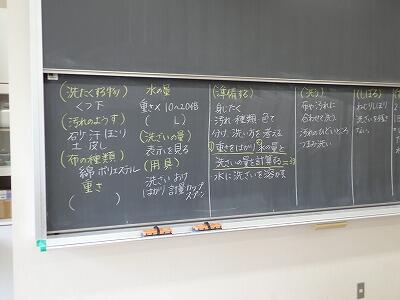 (洗たくする物)
くつ下
(汚れのようす)
砂 汗 ほこり
土 皮し
(布の種類)
綿 ポリエステル
重さ
(　　　)
水の量
重さ×10〜20倍
(　　L)
(洗ざいの量)
表示を見る
(用具)
洗ざい おけ
はかり 計量カップ
スプーン
(準備する)
身じたく
汚れ 種類 色で
分け、洗い方を考える
①重さをはかり②水の量と
洗ざいの量を計算する
水に洗ざいを溶かす
(洗う)
布や汚れに
合わせて洗う
汚れのひどいところ
つまみ洗い
(しぼる)
ねじりしぼり
洗ざいを残さ
ない